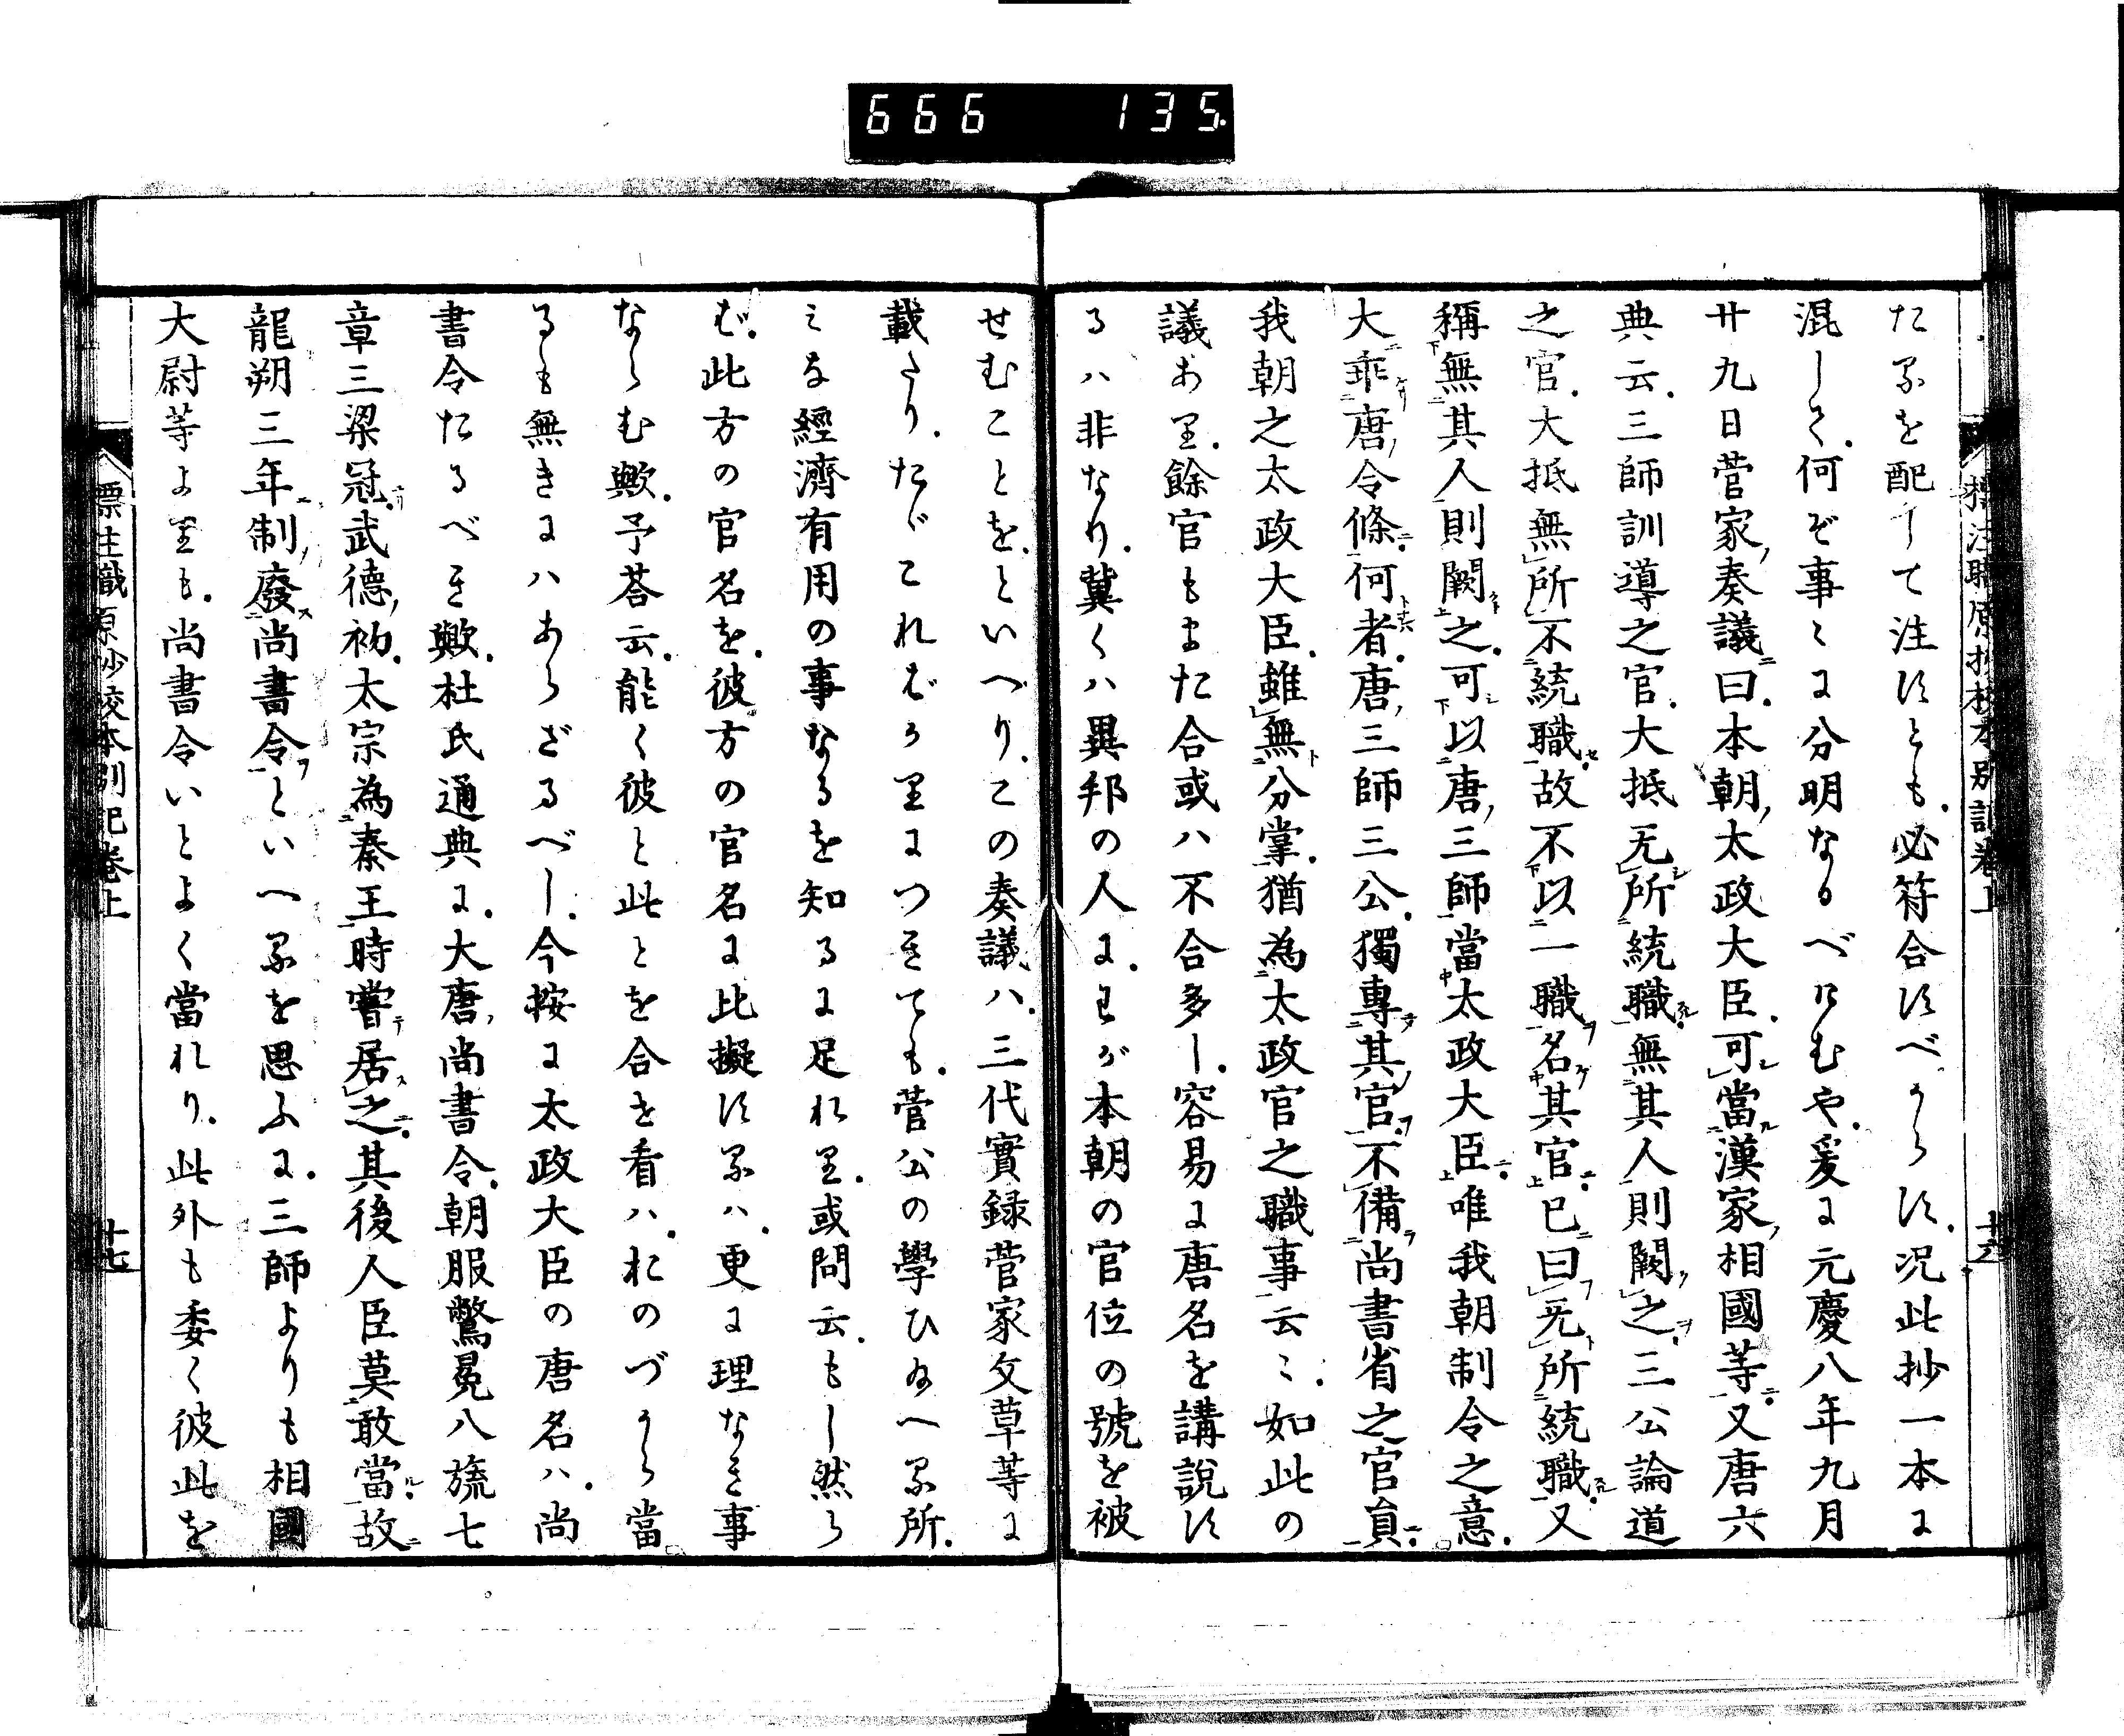 666 135.
標注職原抄校本別記卷上
十六
たるを配りて注すとも。必符合すべからず。况此抄一本に
混じて。何ぞ事〻に分明なるべけむや。爰に元慶八年九月
廿九日菅家奏議曰。本朝太政大臣。可當漢家相國等。又唐六
典云。三師訓導之官。大抵无所統職。無其人則闕之。三公論道
之官。大抵無所不統職。故不以一職名其官。已曰无所統職。又
稱無其人則闕之。可以唐三師當太政大臣。唯我朝制令之意。
大乖唐令條。何者。唐三師三公。獨專其官。不備尚書省之官員。
我朝之太政大臣。雖無分掌。猶為太政官之職事云〻。如此の
議あり。餘官もまた合或ハ不合多し。容易に唐名を講說す
るハ非なり。冀くハ異邦の人に。わが本朝の官位の號を被
せむことを。といへり。この奏議ハ。三代實録菅家文草等に
載たり。たゞこればかりにつきても。菅公の學ひ給へる所。
みな經濟有用の事なるを知るに足れり。或問云。もし然ら
ば。此方の官名を。彼方の官名に比擬するハ。更に理なき事
ならむ歟。予荅云。能く彼と此とを合せ看ハ。おのづから當
るも無きにハあらざるべし。今按に太政大臣の唐名ハ。尚
書令たるべき歟。杜氏通典に。大唐尚書令。朝服鷩冕八旒七
章三梁冠。武德初。太宗為秦王時嘗居之。其後人臣莫敢當。故
龍朔三年制廢尚書令といへるを思ふに。三師よりも相國
大尉等よりも。尚書令いとよく當れり。此外も委く彼此を
標注職原抄校本別記卷上
十七